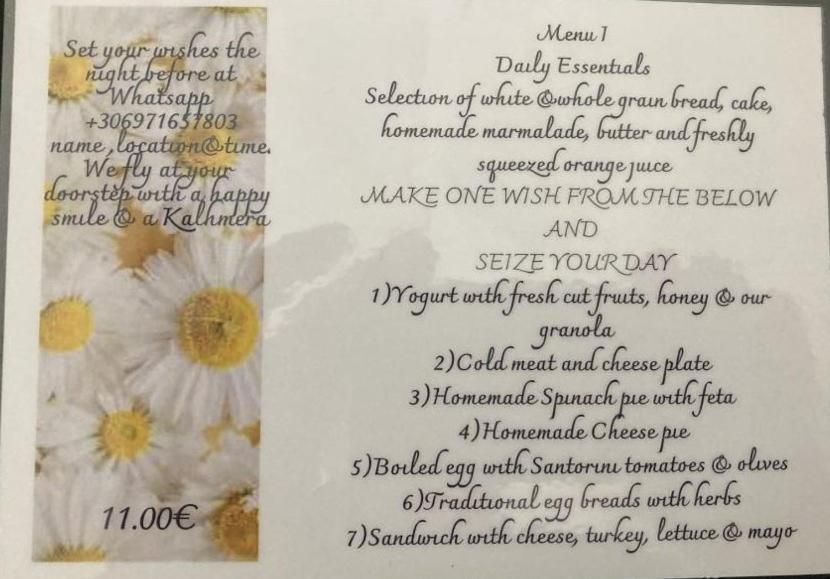 Set your wishes the
night before at
Whatsapp
+306971657803
name,location@time.
We fly at your
doorstep with a happy
smile & a Kalhmera
11.00€
Menu 1
Daily Essentials
Selection of white &whole grain bread, cake,
homemade marmalade, butter and freshly
squeezed orange juice
MAKE ONE WISH FROM THE BELOW
AND
SEIZE YOUR DAY
1)Yogurt with fresh cut fruits, honey & our
granola
2)Cold meat and cheese plate
3)Homemade Spinach pie with feta
4)Homemade Cheese pie
5)Boiled egg with Santorini tomatoes & olives
6)Traditional egg breads with herbs
7)Sandwich with cheese, turkey, lettuce & mayo